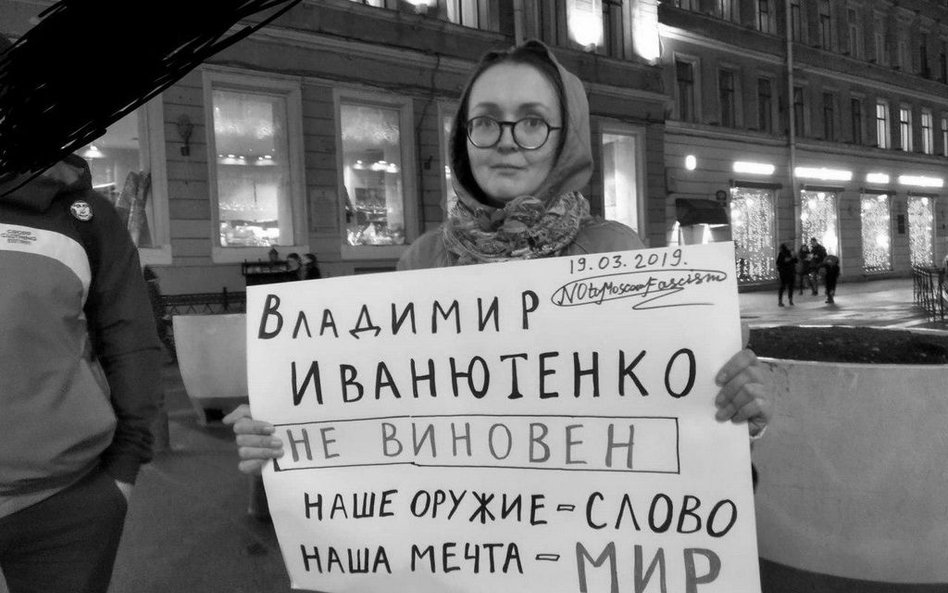 19.03.2019.
NOtoMoscowFascism
Владимир
ИВАНЮТЕНКО
НЕ ВИНОВЕН
НАШЕ ОРУЖИЕ - СЛОВО
НАША МЕЧТА - МИР